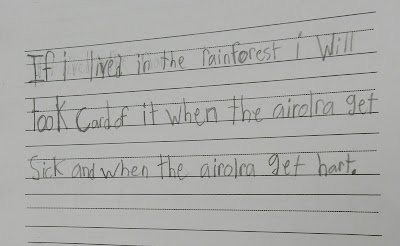 If i lived in the rainforest i Will
took Card of it when the airolra get
Sick and when the airolra get hart.